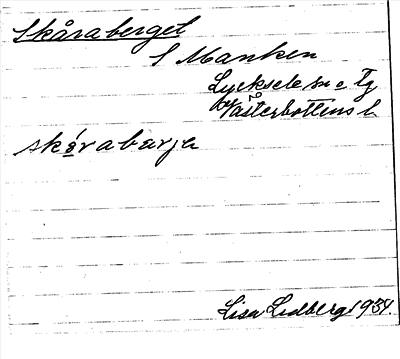 Skåraberget
S Manken
Lycksele sn o Tg
Västerbottens l.
skårabarja
Lisa Lidberg 1934.